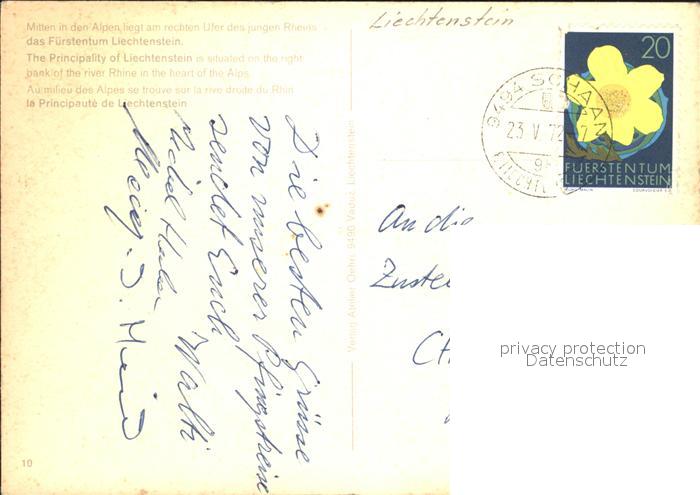 Mitten in den Alpen liegt am rechten Ufer des jungen Rheins
das Fürstentum Liechtenstein.
The Principality of Liechtenstein is situated on the right
bank of the river Rhine in the heart of the Alps.
Au milieu des Alpes se trouve sur la rive droite du Rhin
la Principauté de Liechtenstein
Liechtenstein
20
9494 SCHAAN
23. V. 72-7
FUERSTENTUM
LIECHTENSTEIN
COURVOISIER
Die besten Grüsse
von unserer Pfingstreise
sendet Euch
Walti
Verlag Atelier Oehri, 9490 Vaduz, Liechtenstein
An die
Zuste
CH
privacy protection
Datenschutz
10